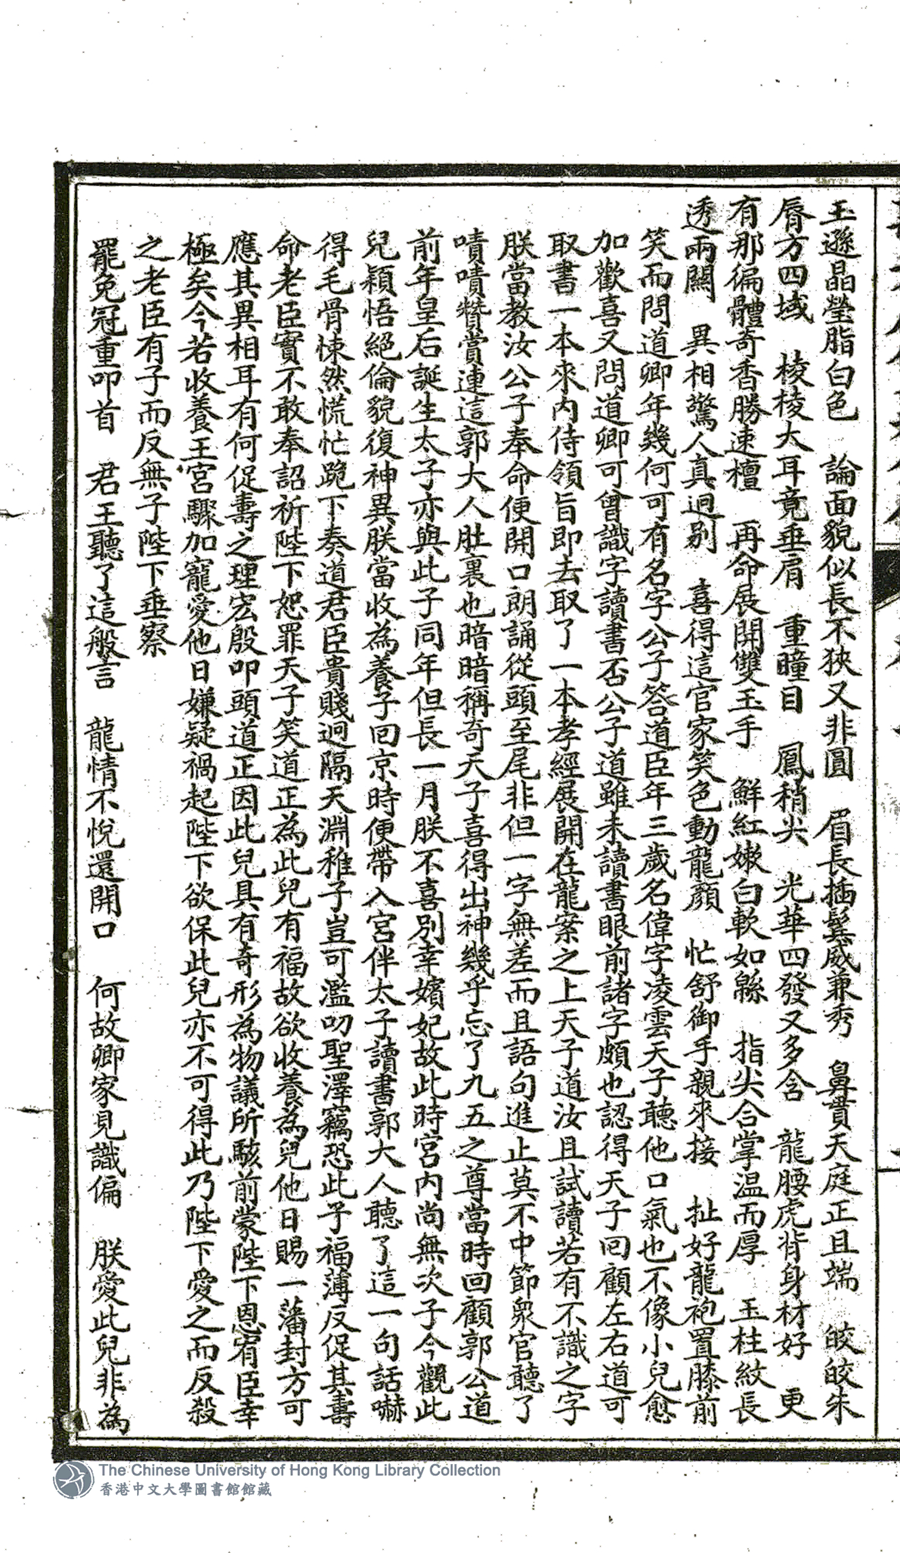 玉遜晶瑩脂白色　論面貌似長不狹又非圓　眉長插鬢威兼秀　鼻貫天庭正且端　皎皎朱
脣方四域　棱棱大耳竟垂肩　重瞳目　鳳稍尖　光華四發又多含　龍腰虎背身材好　更
有那徧體奇香勝速檀　再命展開雙玉手　鮮紅嫩白軟如緜　指尖合掌温而厚　玉柱紋長
透兩關　異相驚人真迥别　喜得這官家笑色動龍顏　忙舒御手親來接　扯好龍袍置膝前
笑而問道卿年幾何可有名字公子答道臣年三歲名偉字凌雲天子聽他口氣也不像小兒愈
加歡喜又問道卿可曾識字讀書否公子道雖未讀書眼前諸字頗也認得天子回顧左右道可
取書一本來内侍領旨即去取了一本孝經展開在龍案之上天子道汝且試讀若有不識之字
朕當教汝公子奉命便開口朗誦從頭至尾非但一字無差而且語句進止莫不中節衆官聽了
嘖嘖贊賞連這郭大人肚裏也暗暗稱奇天子喜得出神幾乎忘了九五之尊當時回顧郭公道
前年皇后誕生太子亦與此子同年但長一月朕不喜別幸嬪妃故此時宮内尚無次子今觀此
兒穎悟絕倫貌復神異朕當收為養子回京時便帶入宮伴太子讀書郭大人聽了這一句話嚇
得毛骨悚然慌忙跪下奏道君臣貴賤迥隔天淵稚子豈可濫叨聖澤竊恐此子福薄反促其壽
命老臣實不敢奉詔祈陛下恕罪天子笑道正為此兒有福故欲收養為兒他日賜一藩封方可
應其異相耳有何促壽之理宏殷叩頭道正因此兒具有奇形為物議所駭前蒙陛下恩宥臣幸
極矣今若收養王宮驟加寵愛他日嫌疑禍起陛下欲保此兒亦不可得此乃陛下愛之而反殺
之老臣有子而反無子陛下垂察
罷免冠重叩首　君王聽了這般言　龍情不悅還開口　何故卿家見識偏　朕愛此兒非為
The Chinese University of Hong Kong Library Collection
香港中文大學圖書館館藏